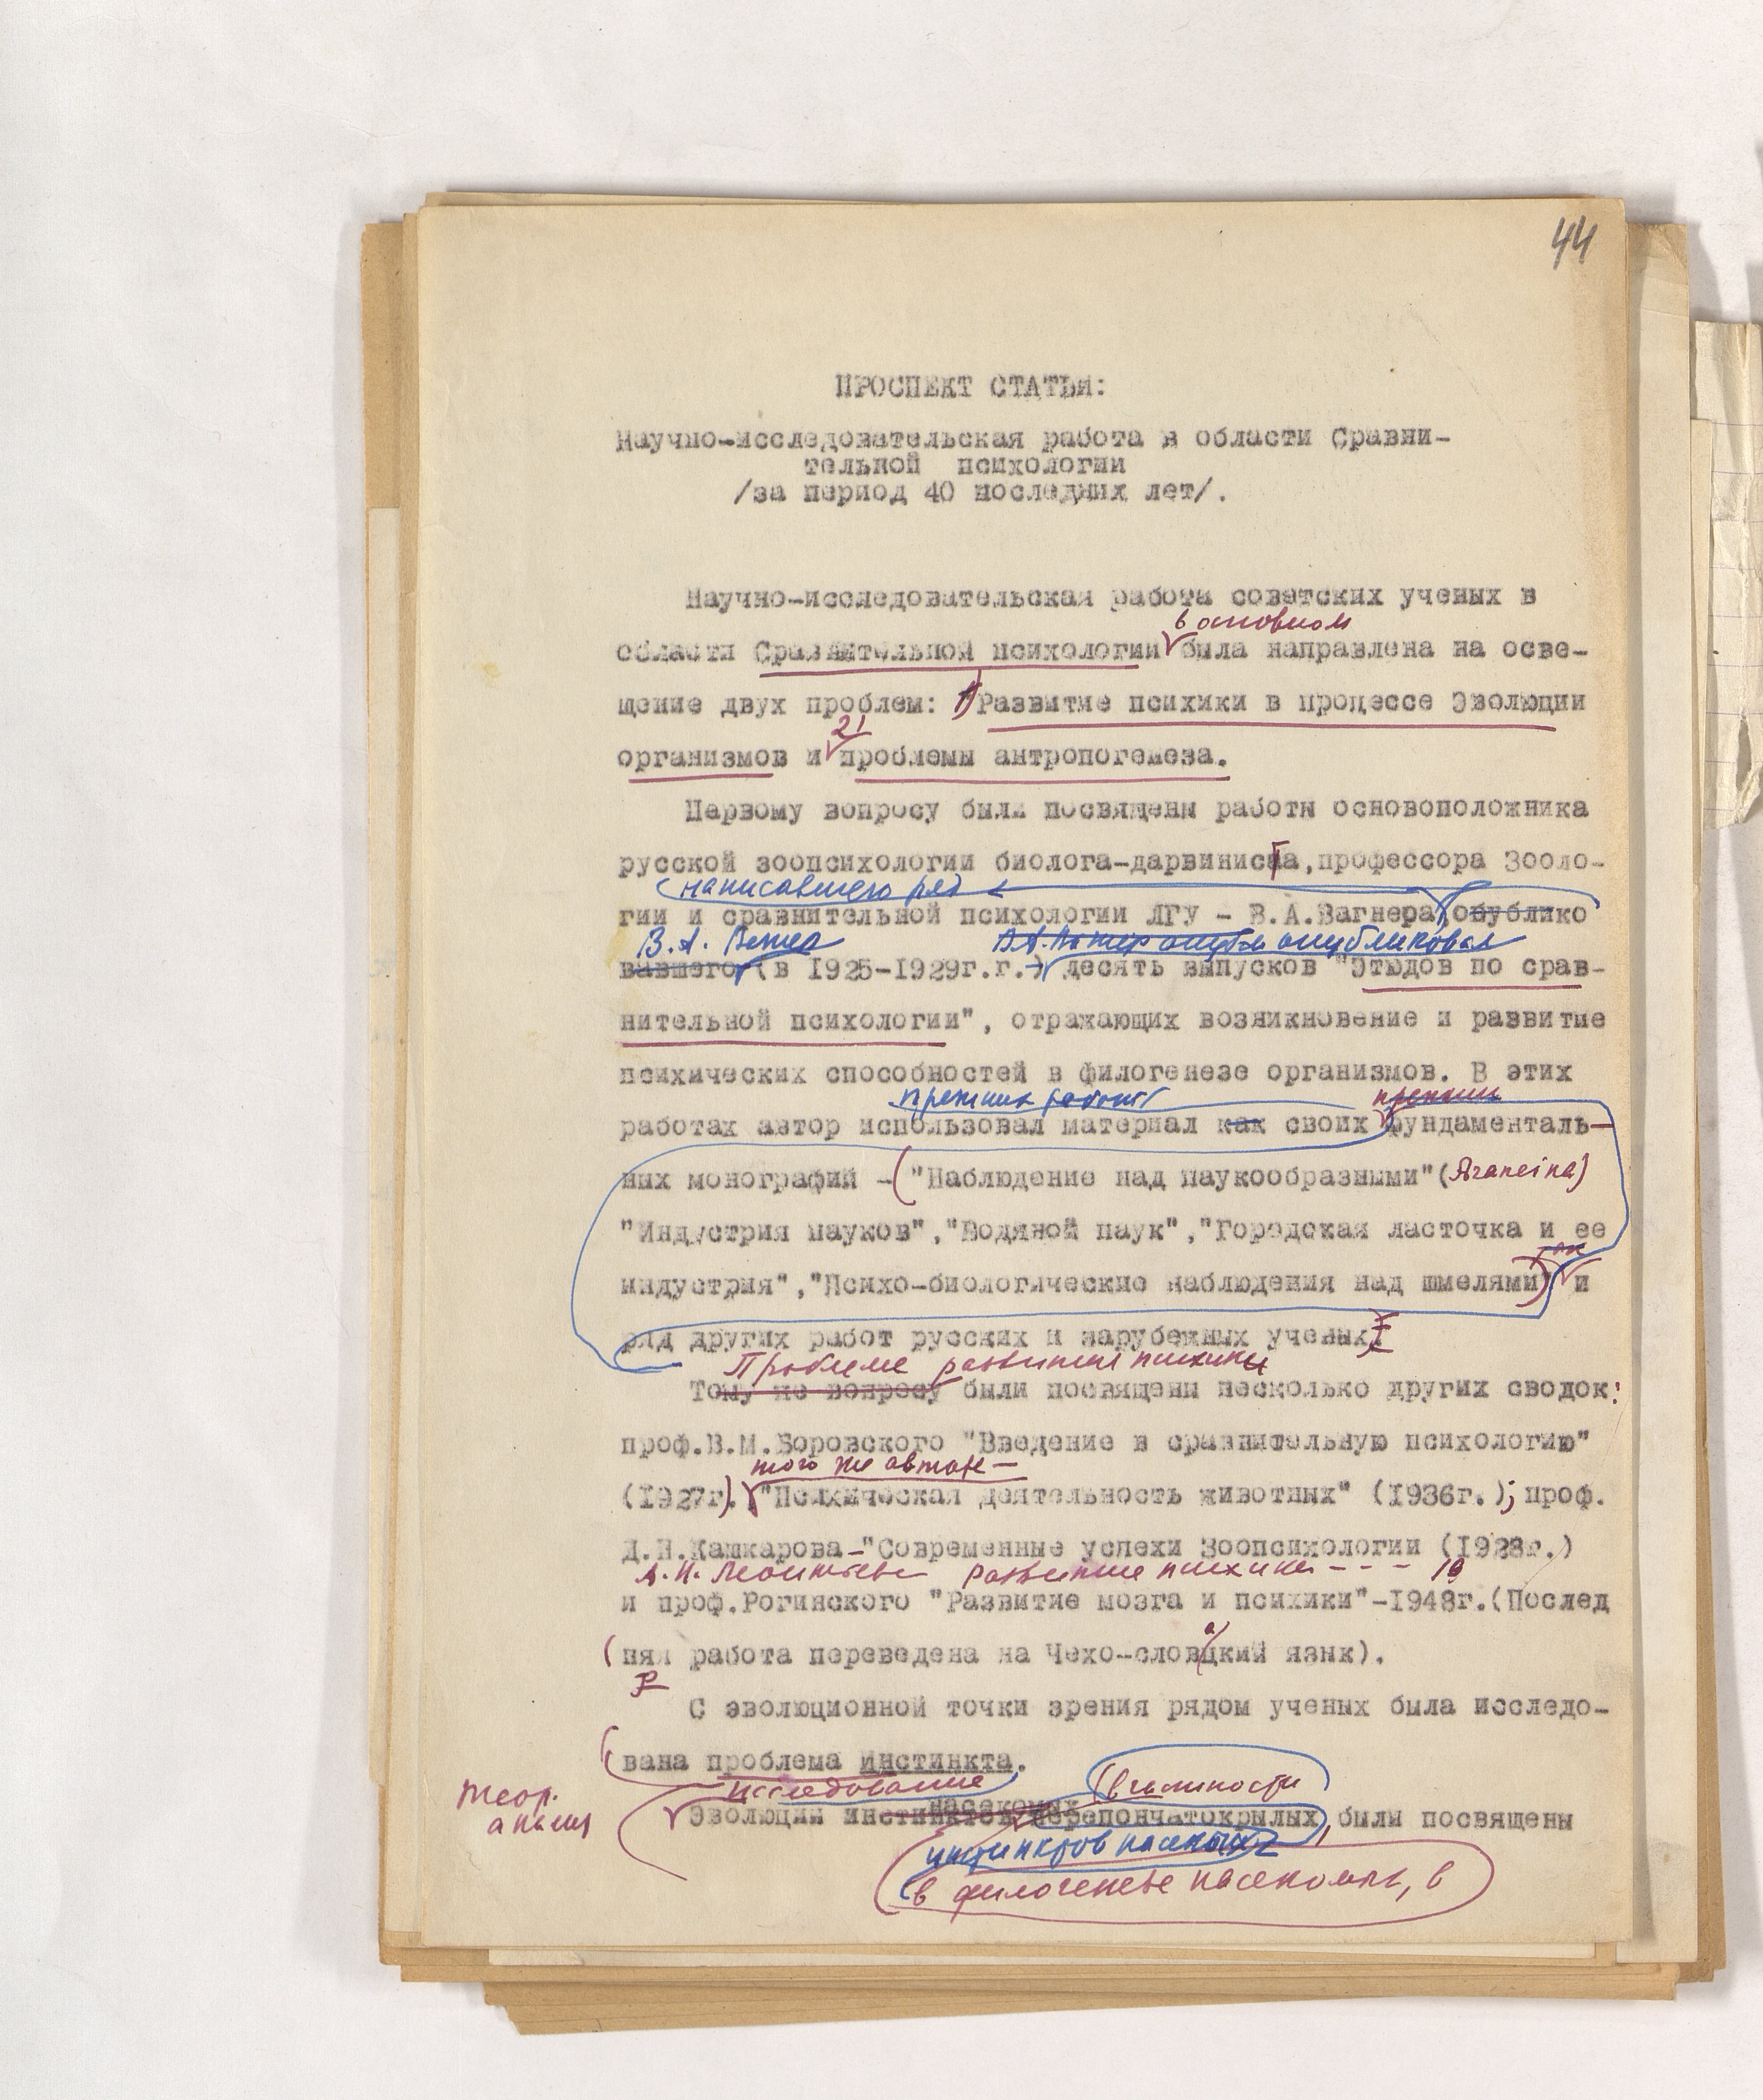 44
ПРОСПЕКТ СТАТЬИ:
Научно-исследовательская работа в области Сравни-
тельной психологии
/за период 40 последних лет/.
Научно-исследовательская работа советских ученых в
в основном
области Сравнительной психологии была направлена на осве-
щение двух проблем: 1) Развитие психики в процессе Эволюции
2)
организмов и проблемы антропогенеза.
Первому вопросу были посвящены работы основоположника
русской зоопсихологии биолога-дарвиниста, профессора Зооло-
написавшего ряд
гии и сравнительной психологии ЛГУ - В.А.Вагнера, опублико
В.А. Вагнер опубликовал
вавшего (в 1925-1929г.г.) десять выпусков "Этюдов по срав-
нительной психологии", отражающих возникновение и развитие
психических способностей в филогенезе организмов. В этих
прежних работ прежних
работах автор использовал материал как своих фундаменталь-
ных монографий - ("Наблюдение над паукообразными" (Araneina)
"Индустрия пауков", "Водяной паук", "Городская ласточка и ее
так
индустрия", "Психо-биологические наблюдения над шмелями") и
ряд других работ русских и зарубежных ученых.
Проблеме развития психики
Тому же вопросу были посвящены несколько других сводок:
проф.В.М.Боровского "Введение в сравнительную психологию"
того же автора —
(1927г). "Психическая деятельность животных" (1936г.); проф.
Д.Н.Кашкарова-"Современные успехи Зоопсихологии (1928г.)
А.Н. Леонтьева развитие психики - - - 19
и проф.Рогинского "Развитие мозга и психики"-1948г.(Послед
няя работа переведена на Чехо-словацкий язык).
С эволюционной точки зрения рядом ученых была исследо-
вана проблема инстинкта.
теор.
анализ
исследование (в частности
насекомых
Эволюции инстинктов перепончатокрылых, были посвящены
инстинктов насекомых
в филогенезе насекомых, в